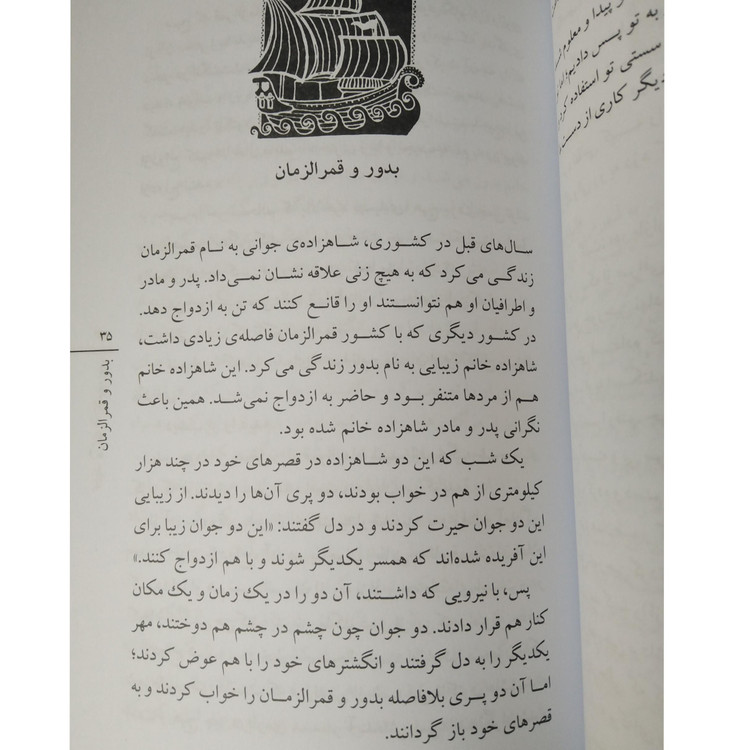 بدور و قمرالزمان
سال‌های قبل در کشوری، شاهزاده‌ی جوانی به نام قمرالزمان
زندگی می‌کرد که به هیچ زنی علاقه نشان نمی‌داد. پدر و مادر
و اطرافیان او هم نتوانستند او را قانع کنند که تن به ازدواج دهد.
در کشور دیگری که با کشور قمرالزمان فاصله‌ی زیادی داشت،
شاهزاده خانم زیبایی به نام بدور زندگی می‌کرد. این شاهزاده خانم
هم از مردها متنفر بود و حاضر به ازدواج نمی‌شد. همین باعث
نگرانی پدر و مادر شاهزاده خانم شده بود.
یک شب که این دو شاهزاده در قصرهای خود در چند هزار
کیلومتری از هم در خواب بودند، دو پری آن‌ها را دیدند. از زیبایی
این دو جوان حیرت کردند و در دل گفتند: «این دو جوان زیبا برای
این آفریده شده‌اند که همسر یکدیگر شوند و با هم ازدواج کنند.»
پس، با نیرویی که داشتند، آن دو را در یک زمان و یک مکان
کنار هم قرار دادند. دو جوان چون چشم در چشم هم دوختند، مهر
یکدیگر را به دل گرفتند و انگشترهای خود را با هم عوض کردند؛
اما آن دو پری بلافاصله بدور و قمرالزمان را خواب کردند و به
قصرهای خود باز گرداندند.
۳۵
بدور و قمرالزمان
پیدا و معلوم
به تو پس دادیم
سستی تو استفاده
دیگر کاری از